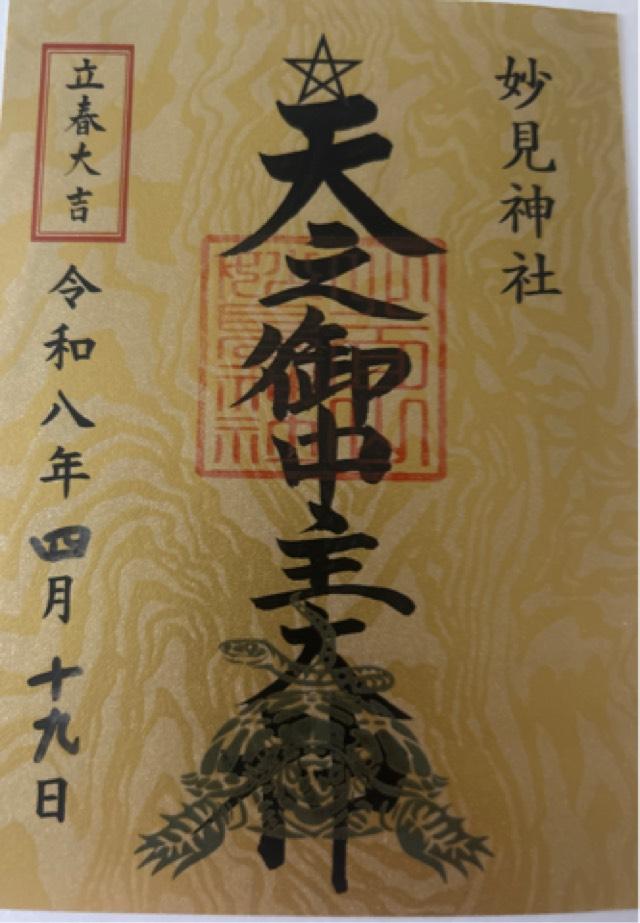 妙見神社
天之御中主大神
立春大吉
令和八年四月十九日